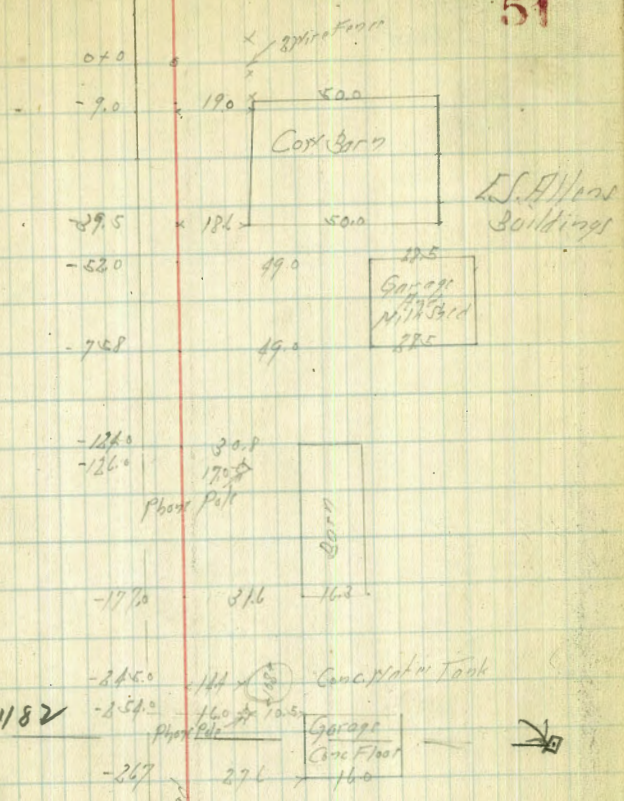 51
2 Wire Fence
0+0
-9.0 19.0 50.0
Cow Barn
E.S. Allens
Buildings
-39.5 18.6 50.0
-52.0 49.0 28.5
Garage
Milkshed
-75.8 49.0 28.5
-124.0 30.8
-126.0 17.0
Phone Pole
Barn
-177.0 31.6 16.3
-245.0 14.4 Conc. Water Tank
1182 -254.0 16.0 10.5
Phone Pole
Garage
Conc Floor
-267 27.6 16.0